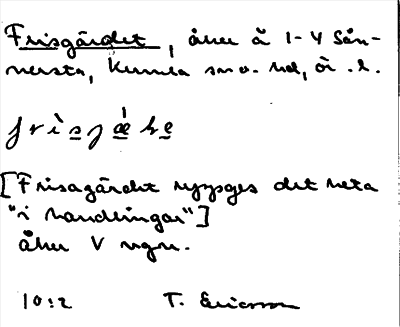 Frisgärdet, åker å 1-4 Sån-
nersta, Kumla sn o. hd, ör. l.
frìsjǽrde
[Frisagärdet uppges det heta
"i handlingar"]
åker V ngn.
10:2 T. Ericsson